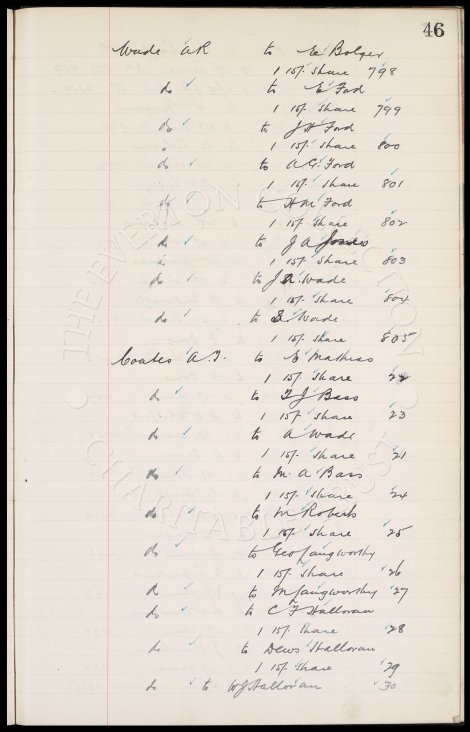 46
Wade A R to E Bolger
1 15/- Share 798
do to E Ford
1 15/- Share 799
do to J H Ford
1 15/- Share 800
do to A G Ford
1 15/- Share 801
do to H M Ford
1 15/- Share 802
do to J A Jones
1 15/- Share 803
do to J Wade
1 15/- Share 804
do to Wade
1 15/- Share 805
Coates A to E Mathias
1 15/- Share 22
do to J Bass
1 15/- Share 23
do to A Wade
1 15/- Share 21
do to M A Bass
1 15/- Share 24
do to M Roberts
1 15/- Share 25
do to Geo Langworthy
1 15/- Share 26
do to M Langworthy 27
do to C F Halloran
1 15/- Share 28
do to Halloran
1 15/- Share 29
do to W J Halloran 30
THE EVERTON COLLECTION
CHARITABLE TRUST